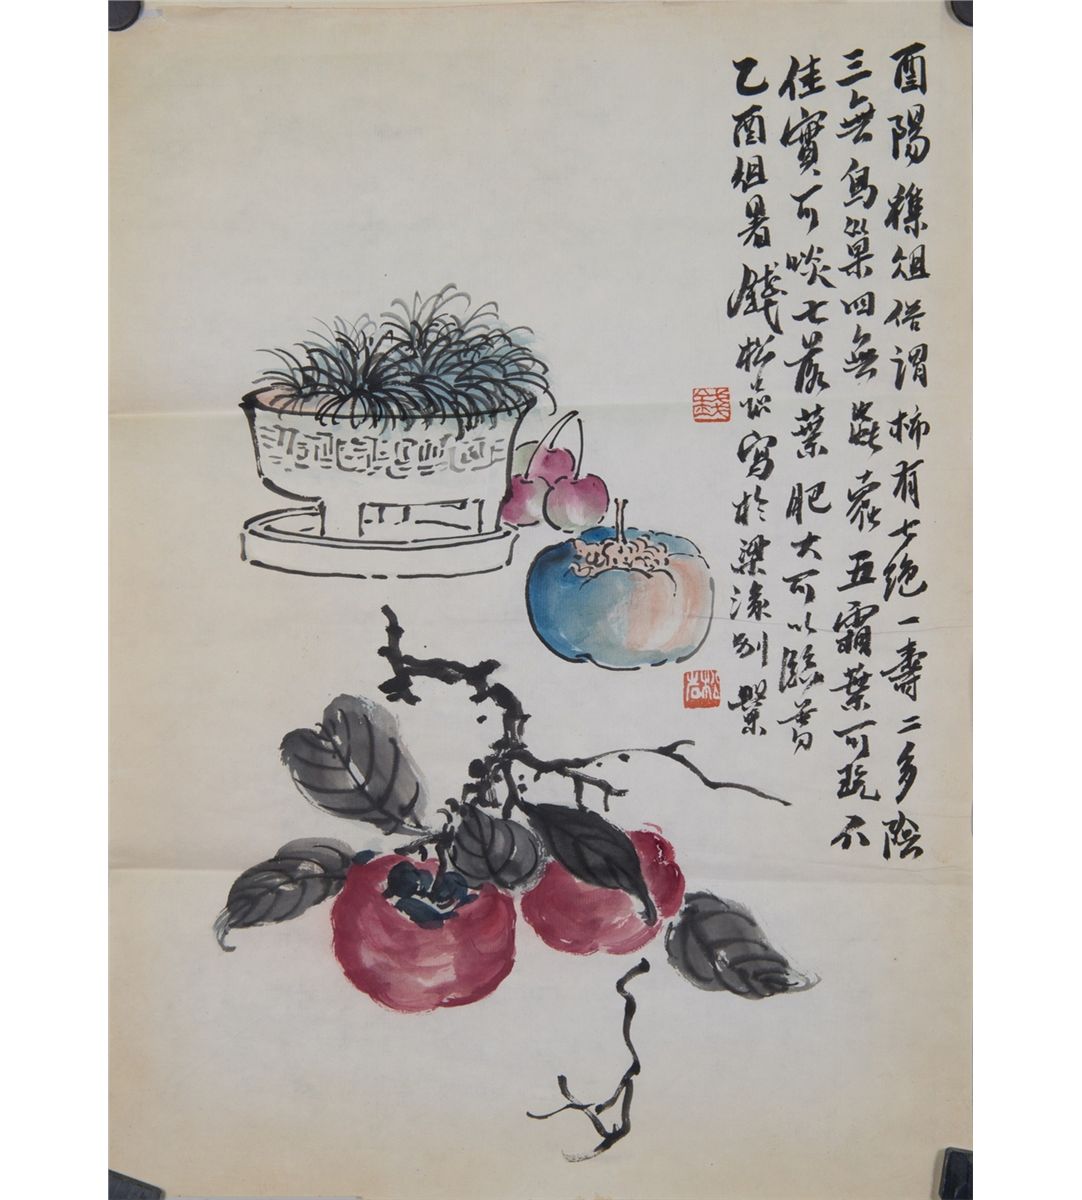 酉陽雜俎俗謂柿有七絶一壽二多陰
三無鳥巢四無蟲蠹五霜葉可玩六
佳實可啖七落葉肥大可以臨書
乙酉徂暑錢松嵒寫於梁溪別業
錢
松嵒